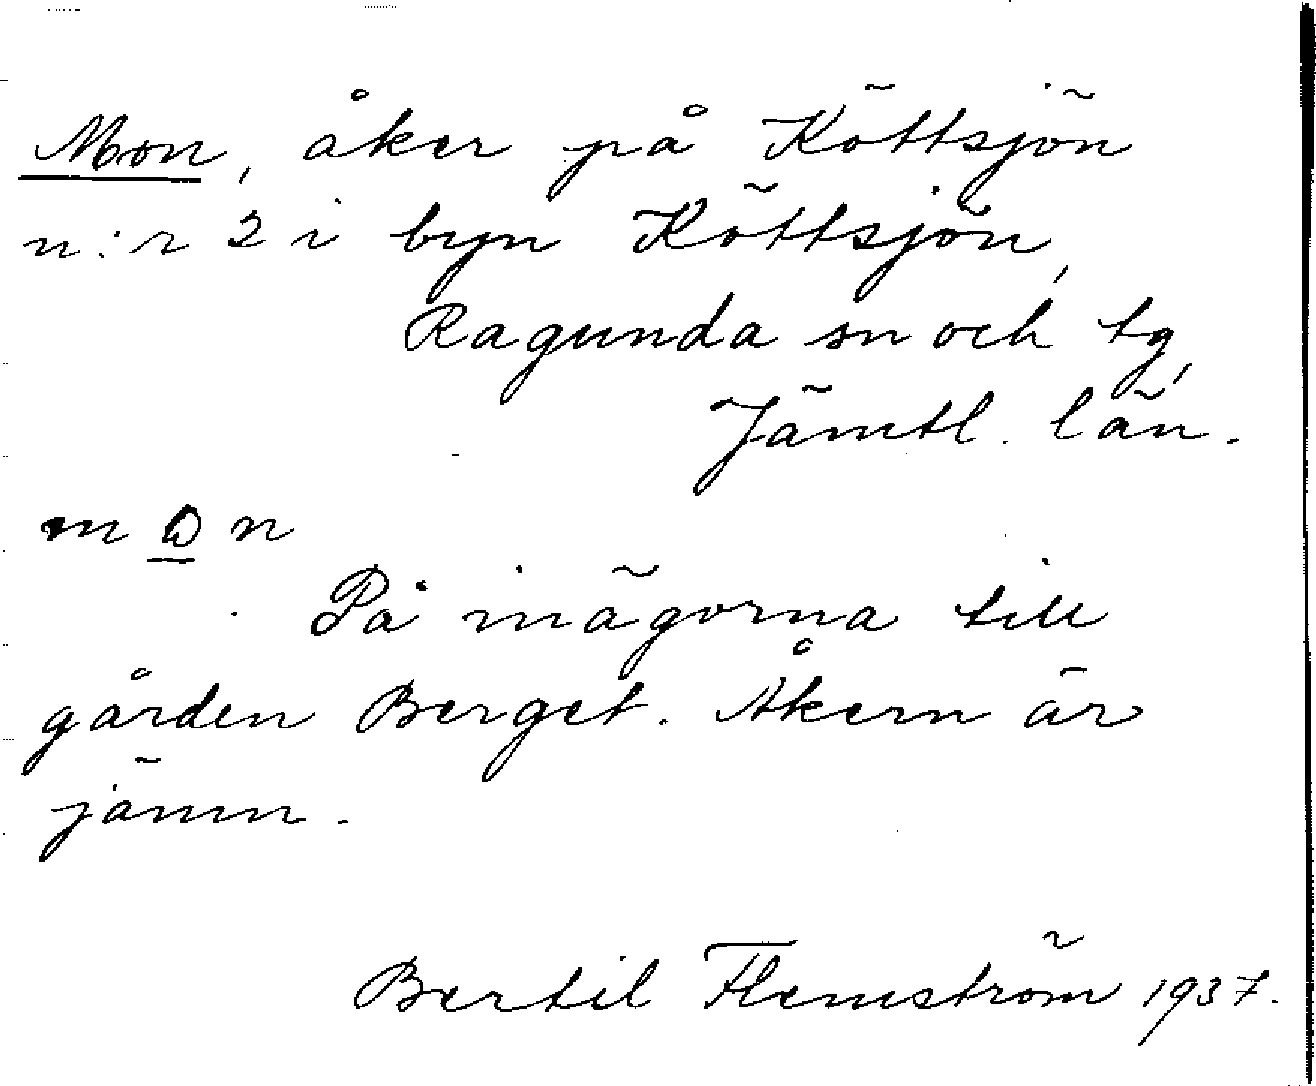 Mon, åker på Köttsjön
n:r 2 i byn Köttsjön,
Ragunda sn och tg,
Jämtl. län.
m n
På inägorna till
gården Berget. Åkern är
jämn.
Bertil Flemström 1937.